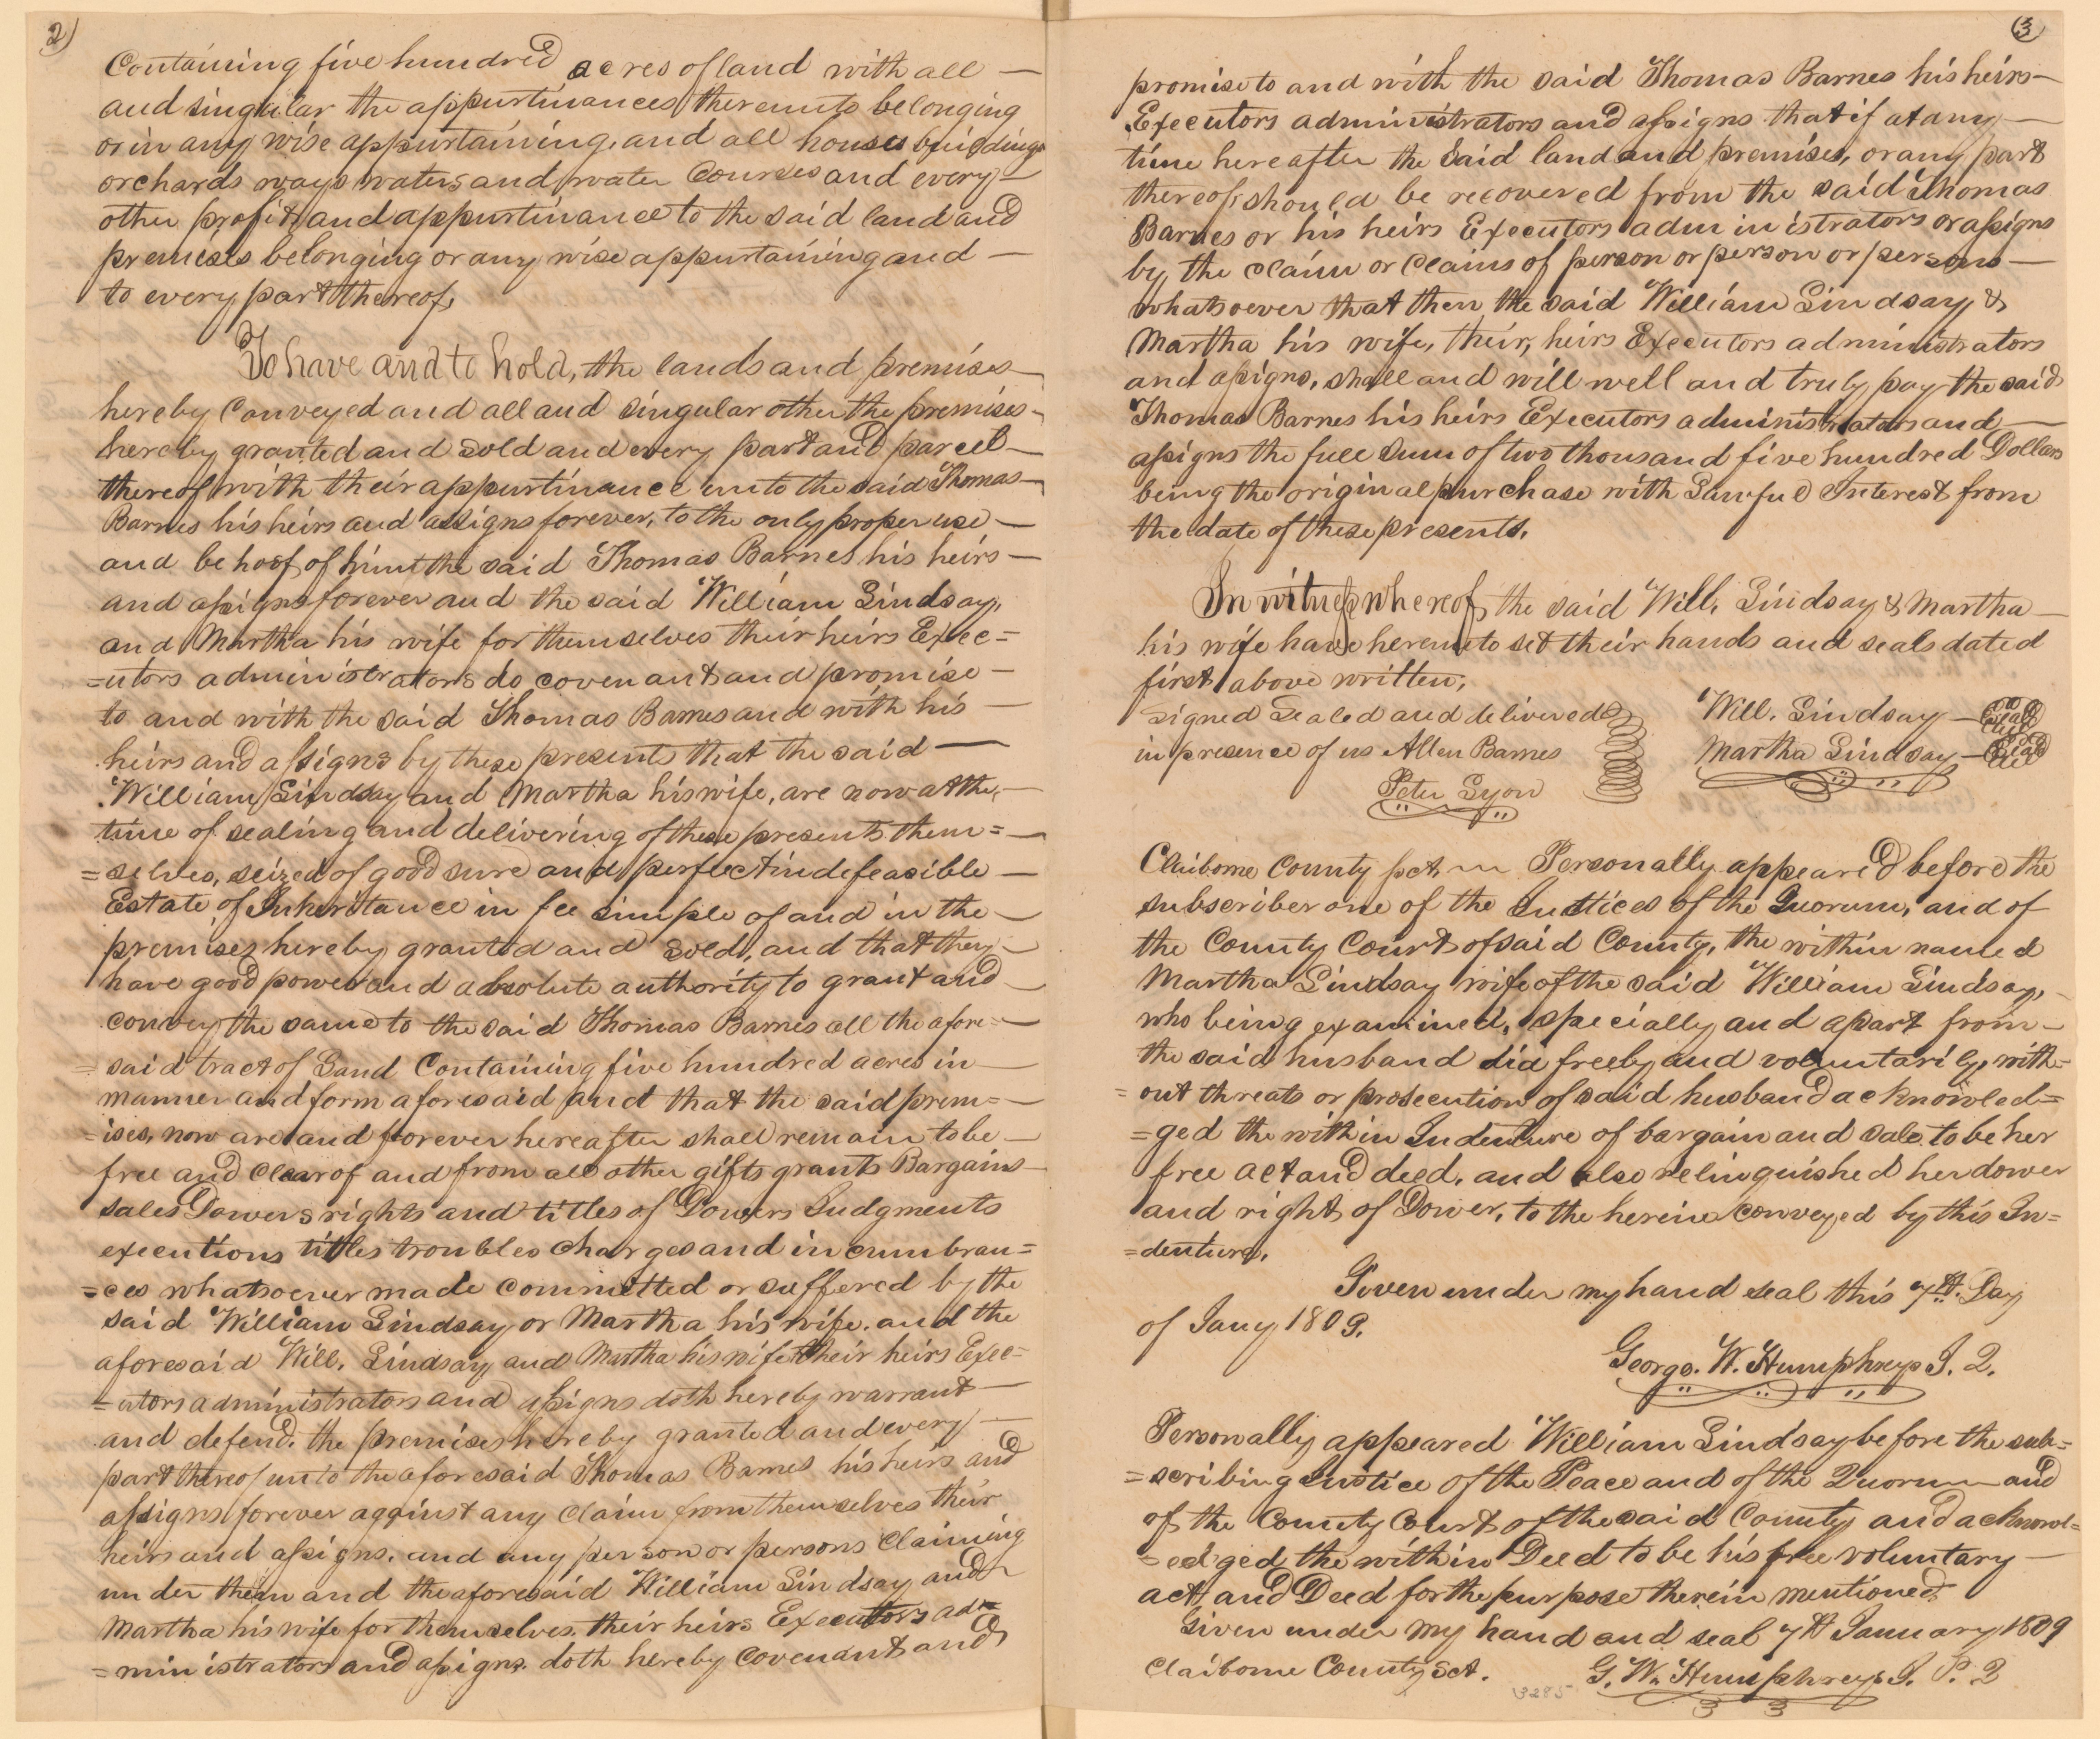 2)
Containing five hundred acres of land with all —
and singular the appurtinances thereunto belonging
or in any wise appurtaining, and all houses buildings
orchards ways waters and water Courses and every —
other profit and appurtinance to the said land and
premises belonging or any wise appurtaining and —
to every part thereof,
To have and to hold, the lands and premises —
hereby Conveyed and all and singular other the premises —
hereby granted and sold and every part and parcel —
thereof with their appurtinance unto the said Thomas —
Barnes his heirs and assigns forever, to the only proper use —
and behoof of him the said Thomas Barnes his heirs —
and assigns forever and the said William Lindsay,
and Martha his wife for themselves their heirs Exec=
=utors administrators do covenant and promise —
to and with the said Thomas Barnes and with his —
heirs and assigns by these presents that the said —
William Lindsay and Martha his wife, are now at the —
time of sealing and delivering of these presents them= —
=selves, seized of good sure and perfect indefeasible —
Estate of Inheritance in fee simple of and in the —
premises hereby granted and sold, and that they —
have good power and absolute authority to grant and —
convey the same to the said Thomas Barnes all the afore= —
=said tract of Land Containing five hundred acres in —
manner and form aforesaid and that the said prem= —
=ises, now are and forever hereafter shall remain to be —
free and clear of and from all other gifts grants Bargains —
sales Dowers rights and titles of Dowers Judgments
executions titles troubles charges and incumbran=
=ces whatsoever made committed or suffered by the
said William Lindsay or Martha his wife. and the
aforesaid Will. Lindsay and Martha his wife their heirs Exec=
=utors administrators and assigns doth hereby warrant —
and defend. the premises hereby granted and every —
part thereof unto the aforesaid Thomas Barnes his heirs and
assigns forever against any claim from themselves their
heirs and assigns. and any person or persons claiming
under them and the aforesaid William Lindsay and
Martha his wife for themselves. their heirs Executors ad=
=ministrators and assigns. doth hereby Covenant and
(3)
promise to and with the said Thomas Barnes his heirs —
Executors administrators and assigns that if at any —
time hereafter the said land and premises, or any part
thereof should be recovered from the said Thomas
Barnes or his heirs Executors administrators or assigns
by the claim or Claims of person or person or persons —
whatsoever that then the said William Lindsay &
Martha his wife, their, heirs Executors administrators
and assigns, shall and will well and truly pay the said
Thomas Barnes his heirs Executors administrators and —
assigns the full sum of two thousand five hundred Dollars
being the original purchase with Lawful Interest from
the date of these presents.
In witness whereof the said Will. Lindsay & Martha —
his wife have hereunto set their hands and seals dated
first above written,
Signed Sealed and delivered Will. Lindsay — Seal
in presence of us Allen Barnes Martha Lindsay — Seal
Peter Lyon
Claiborne County sct Personally appeared before the
subscriber one of the Justices of the Quorum, and of
the County Court of said County, the within named
Martha Lindsay wife of the said William Lindsay,
who being examined, specially and apart from —
the said husband did freely and voluntarily, with=
=out threats or prosecution of said husband acknowled=
=ged the within Indenture of bargain and sale to be her
free act and deed, and also relinquished her dower
and right of Dower, to the herein conveyed by this In=
=denture,
Given under my hand seal this 7th. Day
of Jany 1809.
George. W. Humphreys J. Q.
Personally appeared William Lindsay before the sub=
=scribing Justice of the Peace and of the Quorum and
of the County Court of the said County and acknowl=
=edged the within Deed to be his free voluntary —
act and Deed for the purpose therein mentioned
Given under my hand and seal 7th January 1809
Claiborne County Sct. G. W. Humphreys J. P. Q
3285